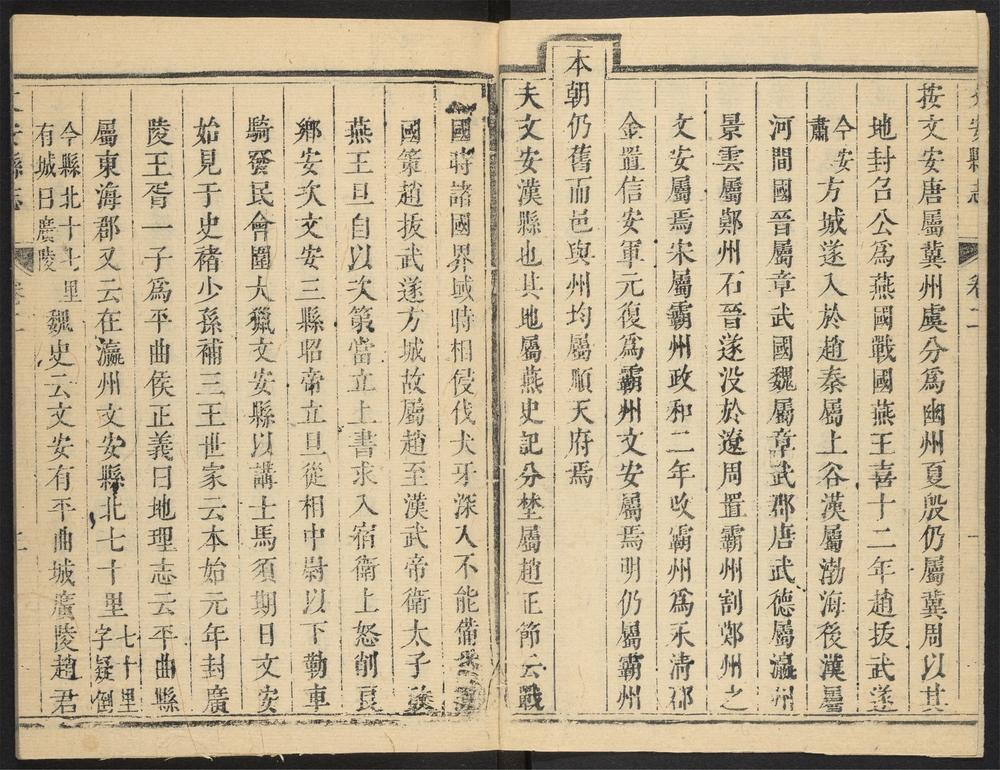 文安縣志
卷二
按文安唐屬冀州虞分爲幽州夏殷仍屬冀周以其
地封召公爲燕國戰國燕王喜十二年趙拔武遂
今安
肅
方城遂入於趙秦屬上谷漢屬渤海後漢屬
河間國晉屬章武國魏屬章武郡唐武德屬瀛州
景雲屬鄚州石晉遂没於遼周置霸州割鄚州之
文安屬焉宋屬霸州政和二年改霸州爲永淸郡
金置信安軍元復爲霸州文安屬焉明仍屬霸州
本朝仍舊而邑與州均屬順天府焉
夫文安漢縣也其地屬燕史記分埜屬趙正節云戰
國時諸國界域時相侵伐犬牙深入不能備
國策趙拔武遂方城故屬趙至漢武帝衛太子
燕王旦自以次第當立上書求入宿衛上怒削良
鄉安次文安三縣昭帝立旦從相中尉以下勒車
騎發民會圍大獵文安縣以講士馬須期日文安
始見于史褚少孫補三王世家云本始元年封廣
陵王胥一子爲平曲侯正義曰地理志云平曲縣
屬東海郡又云在瀛州文安縣北七十里
七十里
字疑倒
今縣北十七里
有城曰廣陵
魏史云文安有平曲城廣陵趙君
文安縣志
卷二